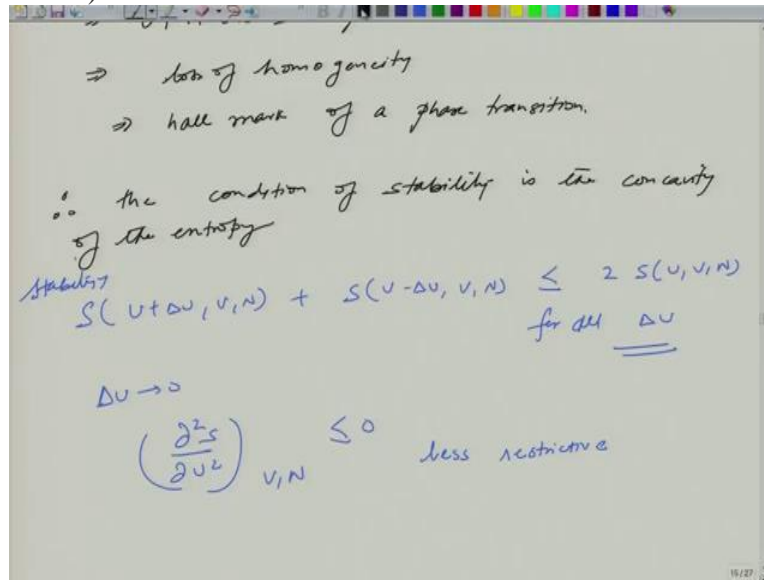 ⇒ loss of homogeneity
⇒ hall mark of a phase transition.
∴ the condition of stability is the concavity
of the entropy
Stability
S(U+ΔU, V, N) + S(U-ΔU, V, N) ≤ 2 S(U, V, N)
for all ΔU
ΔU → 0
(∂²S/∂U²)_{V,N} ≤ 0 less restrictive
15/27